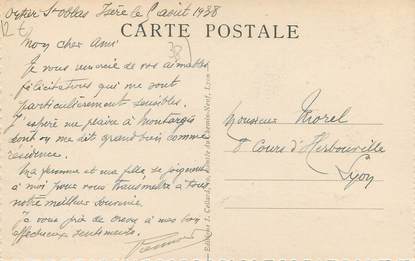 Isère le 5 août 1938
CARTE POSTALE
Mon cher Ami
Je vous remercie de vos aimables
félicitations qui me sont
particulièrement sensibles.
J'espère me plaire à Montargis
dont on me dit grand bien comme
résidence.
Ma femme et ma fille se joignent
à moi pour vous transmettre à tous
notre meilleur souvenir.
Je vous prie de croire à mes bons
affectueux sentiments.
Monsieur Morel
8 Cours d'Herbouville
Lyon